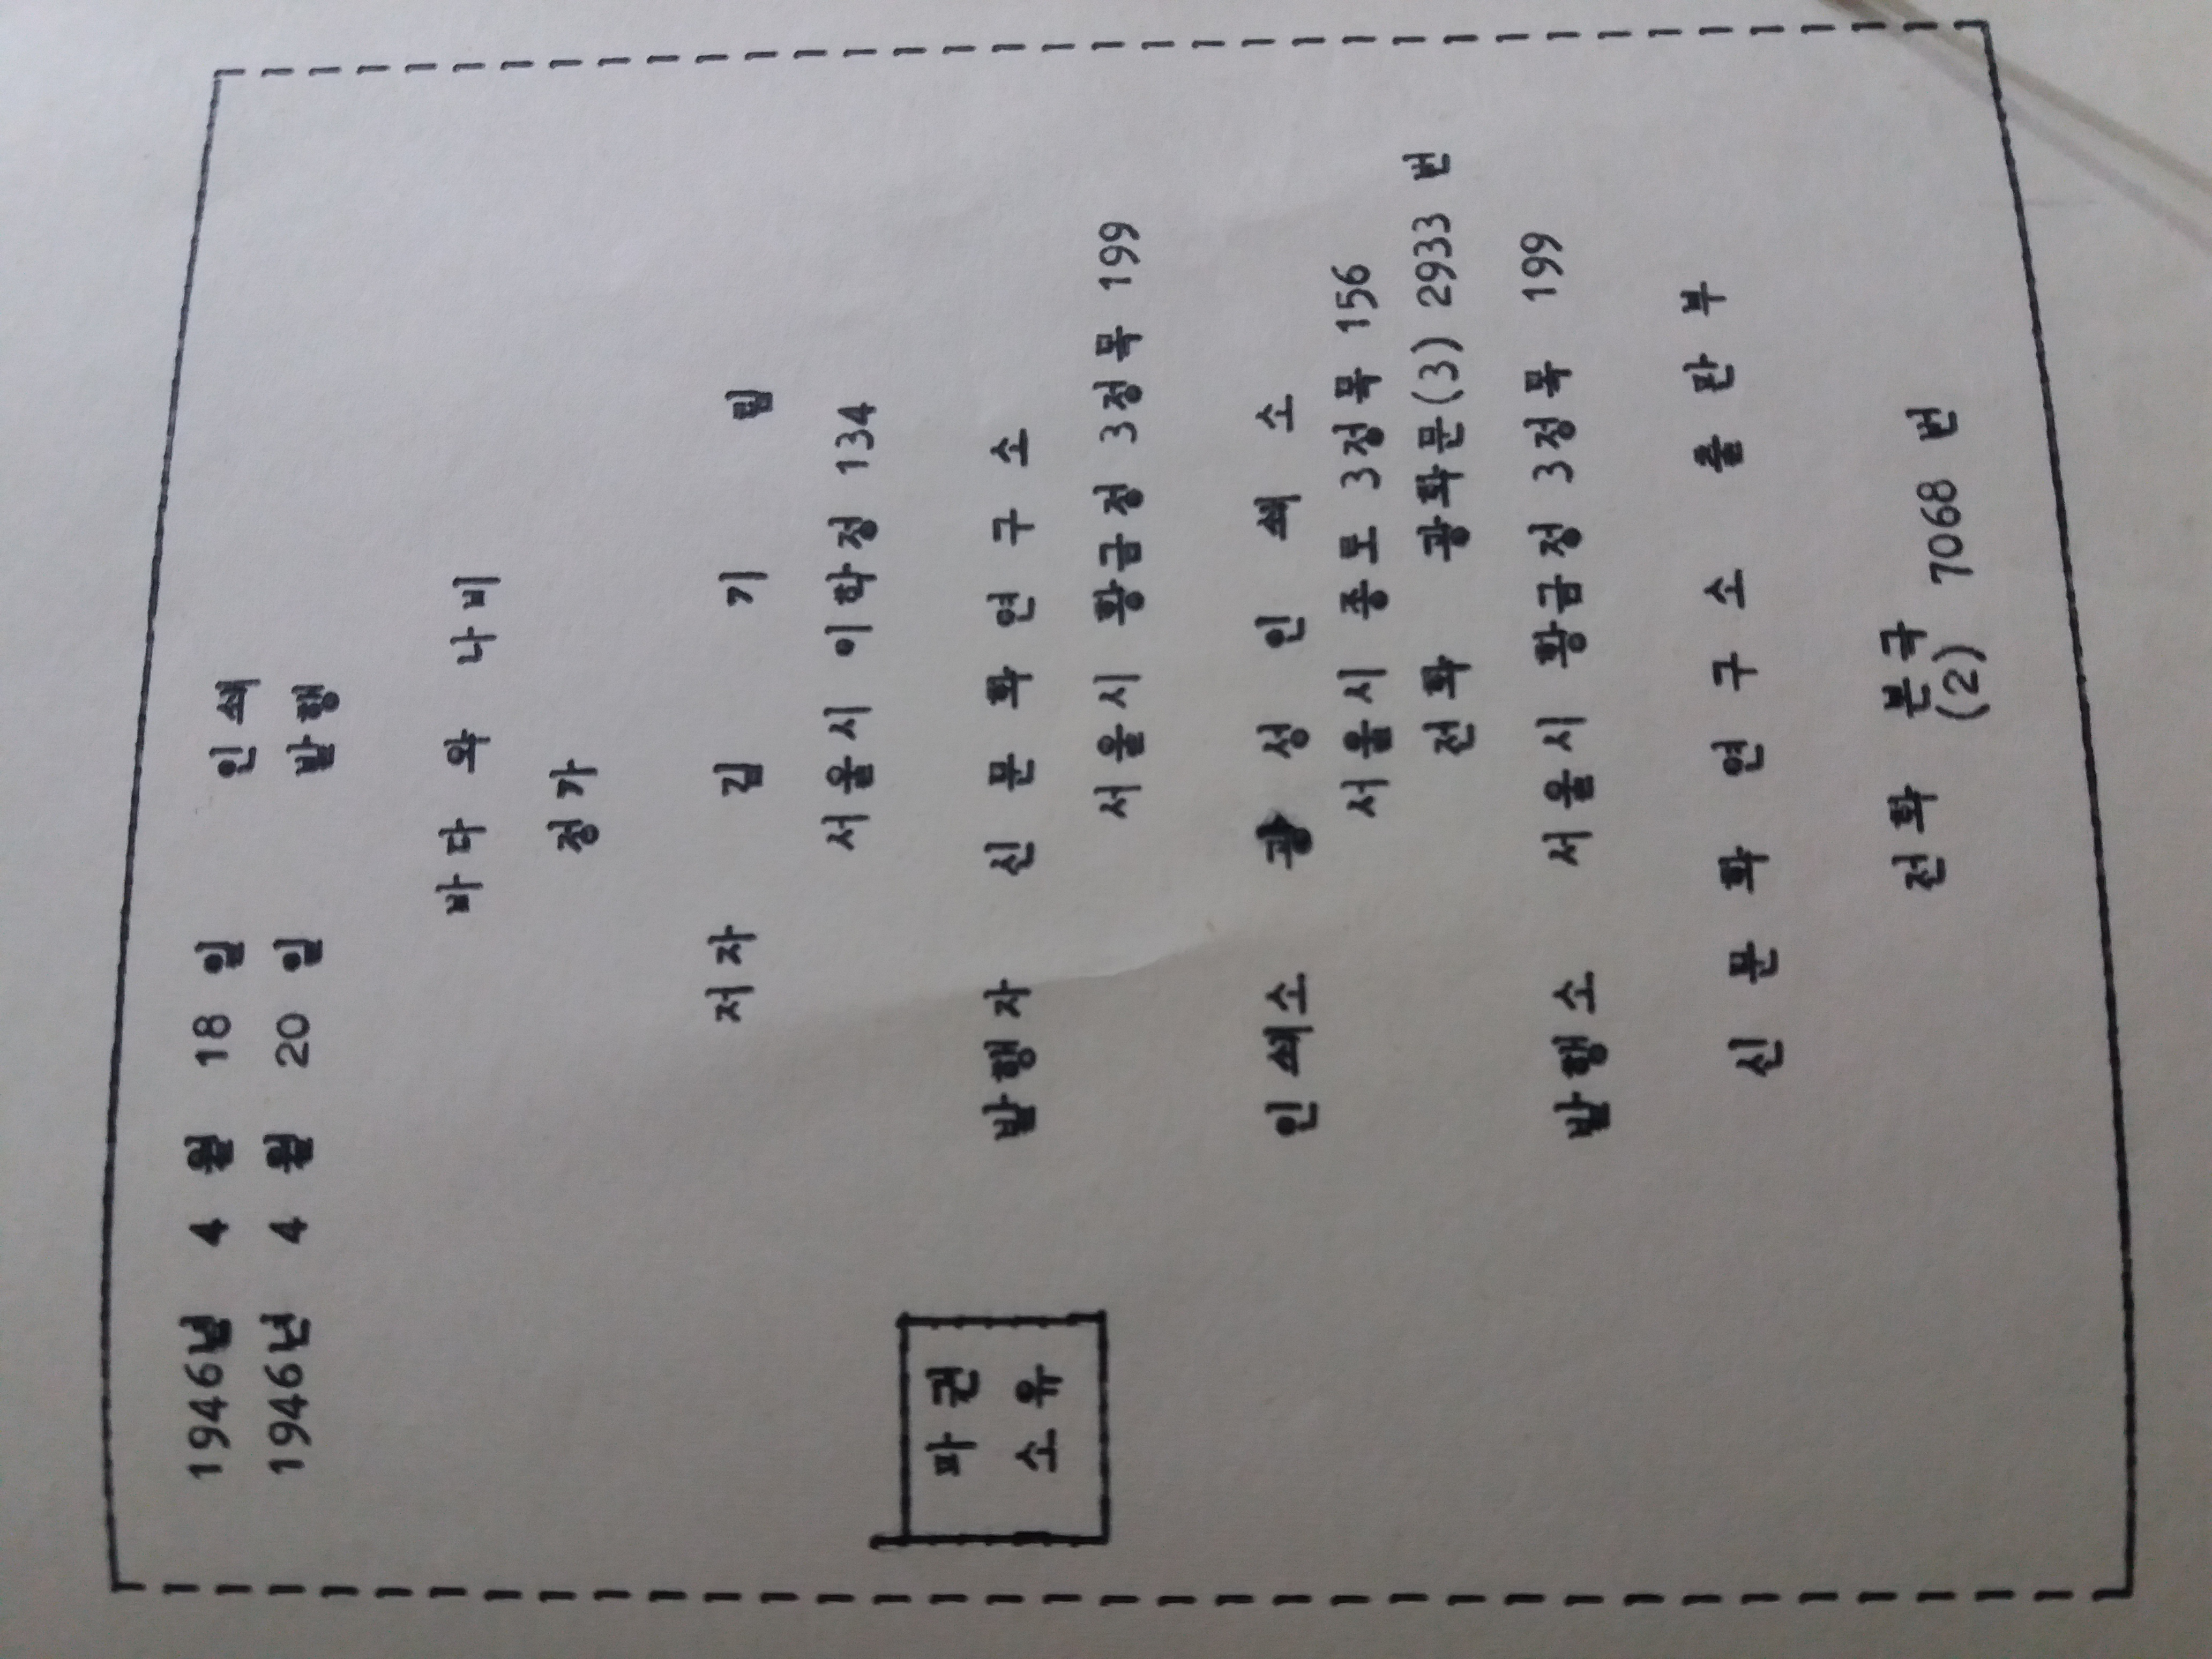 1946년 4 월 18 일 인쇄
1946년 4 월 20 일 발행
바 다 와 나 비
정가
저자 김 기 림
서울시 이학정 134
발행자 신 문 화 연 구 소
서울시 황금정 3정목 199
판권
소유
인쇄소 광 성 인 쇄 소
서울시 종로 3정목 156
전화 광화문(3) 2933 번
발행소 서울시 황금정 3정목 199
신 문 화 연 구 소 출 판 부
전화 본국(2) 7068 번